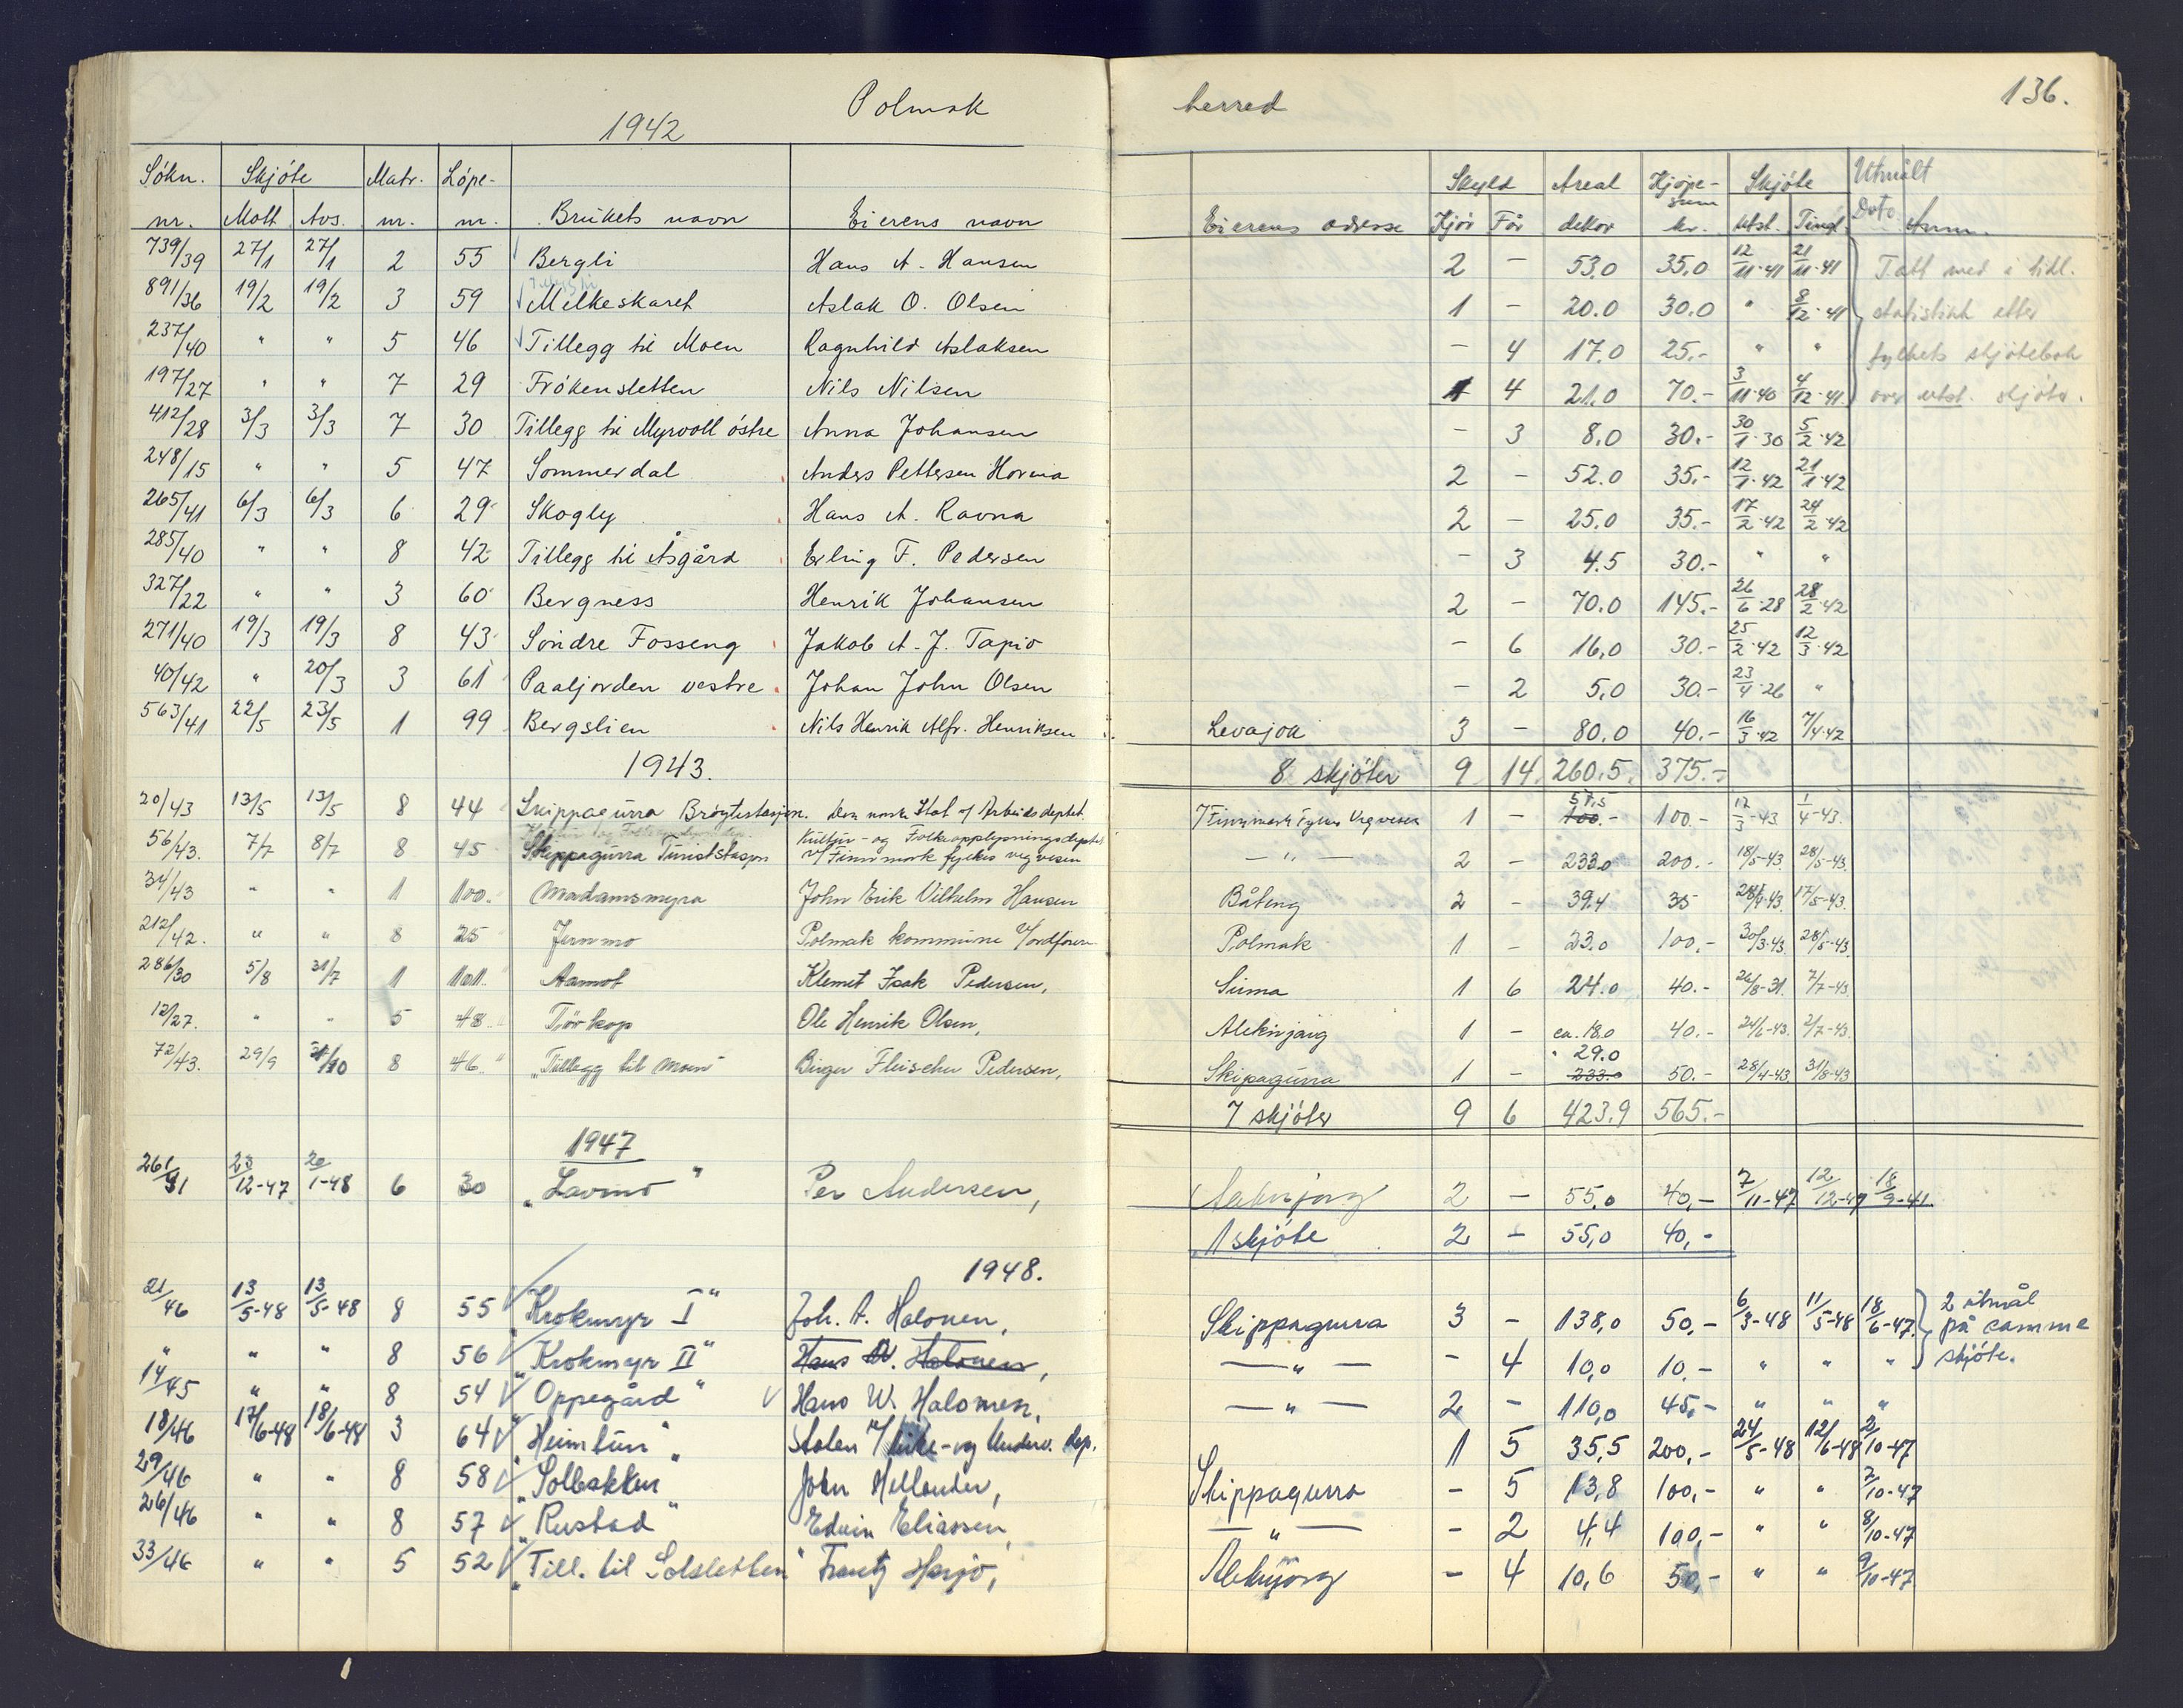 Polmak herred 136.
1942
Søkn. Skjøte Matr. Løpe- Skyld Areal Kjøpe- Skjøte Utmålt
nr. Mott. Avs. nr. nr. Brukets navn Eierens navn Eierens adresse Kjör För dekar sum kr. Utst. Tingl. Dato Anm.
739/39 27/1 27/1 2 55 Bergli Hans A. Hansen 2 - 53,0 35,0 12/11-41 21/11-41 Tatt med i tidl.
891/36 19/2 19/2 3 59 Melkeskaret Aslak O. Olsen 1 - 20.0 30.0 " 8/12-41 statistikk etter
237/40 " " 5 46 Tillegg til Moen Ragnhild Aslaksen - 4 17.0 25.- " " fylkets skjøtebok
197/27 " " 7 29 Frökensletten Nils Nilsen 4 21.0 70.- 3/11-40 4/12-41 over utst. skjøter.
412/28 3/3 3/3 7 30 Tillegg til Myrvoll østre Anna Johansen - 3 8,0 30.- 30/1-30 5/2-42
248/15 " " 5 47 Sommerdal Anders Pettersen Horma 2 - 52.0 35.- 12/1-42 21/1-42
265/41 6/3 6/3 6 29 Skogly Hans A. Ravna 2 - 25.0 35.- 17/2-42 24/2-42
285/40 " " 8 42 Tillegg til Åsgård Erling F. Pedersen - 3 4.5 30.- " "
327/22 " " 3 60 Bergness Henrik Johansen 2 - 70.0 145.- 26/6-28 28/2-42
271/40 19/3 19/3 8 43 Söndre Fosseng Jakob A. J. Tapio - 6 16,0 30.- 25/2-42 12/3-42
40/42 " 20/3 3 61 Paaljorden vestre Johan John Olsen - 2 5,0 30.- 23/4-26 "
563/41 22/5 23/5 1 99 Bergslien Nils Henrik Alfr. Henriksen Levajok 3 - 80.0 40.- 16/3-42 7/4-42
1943. 8 skjöter 9 14 260.5. 375.-
20/43 13/5 13/5 8 44 Skippagurra Bröytestasjon. Den norske Stat v/ Arbeidsdeptet. v/Finnmark Fylkes Vegvesen 1 - 57,5 100.- 100.- 17/3-43. 1/4-43.
56/43. 7/7 8/7 8 45 Skippagurra Turiststasjon Kultur- og Folkeopplysningsdeptet v/ Finnmark fylkes vegvesen - " - 2 - 233.0 200.- 18/5-43 28/5-43.
34/43 " " 1 100. Madamsmyra John Erik Vilhelm Hansen Båteng 2 - 39.4 35 28/4-43. 17/5-43.
212/42. " " 8 25 Jernmo Polmak kommune v/ordforer. Polmak 1 - 23.0 100.- 30/3-43. 28/5-43.
286/30 5/8 31/7 1 101. Aamot Klemet Isak Pedersen, Sirma 1 6 24.0 40.- 26/8-31. 7/7-43.
12/27. " " 5 48. Törkop Ole Henrik Olsen, Aleknjarg 1 - ca. 18.0 40.- 24/6-43. 2/7-43.
72/43. 29/9 8 46. "Tillegg til Moen" Birger Fleischer Pedersen, Skipagurra 1 - 29.0 233.0 50.- 28/4-43. 31/8-43
7 skjöter 9 6 423.9 565.-
1947
261/31 23/12-47 20/1-48 6 30 "Lavmo" Per Andersen, Aleknjarg 2 - 55.0 40,- 7/11-47 12/12-47 18/9-41.
1 skjöte 2 - 55,0 40,-
1948.
21/46 13/5-48 13/5-48 8 55 "Krokmyr I" Joh. A. Halonen, Skippagurra 3 - 138,0 50,- 6/3-48 11/5-48 18/6-47. 2 utmål
" " " 8 56 "Krokmyr II" Hans W. Halonen, - " - - 4 10,0 10.- " " " på samme skjöte.
14/45 " " 8 54 "Oppegård" Hans W. Halonen, - " - 2 - 110,0 45,- " " "
18/46 17/6-48 18/6-48 3 64 "Heimtun" Staten v/ kirke- og Underv. dep. 1 5 35,5 200,- 24/5-48 12/6-48 2/10-47
29/46 " " 8 58 "Solbakken" John Hellander, Skippagurra - 5 13,8 100,- " " 7/10-47
26/46 " " 8 57 "Rustad" Edvin Eliassen, - " - - 2 4,4 100,- " " 8/10-47
33/46 " " 5 52 "Till. til Solsletten" Frantz Harjo, Aleknjarg - 4 10,6 50,- " " 9/10-47